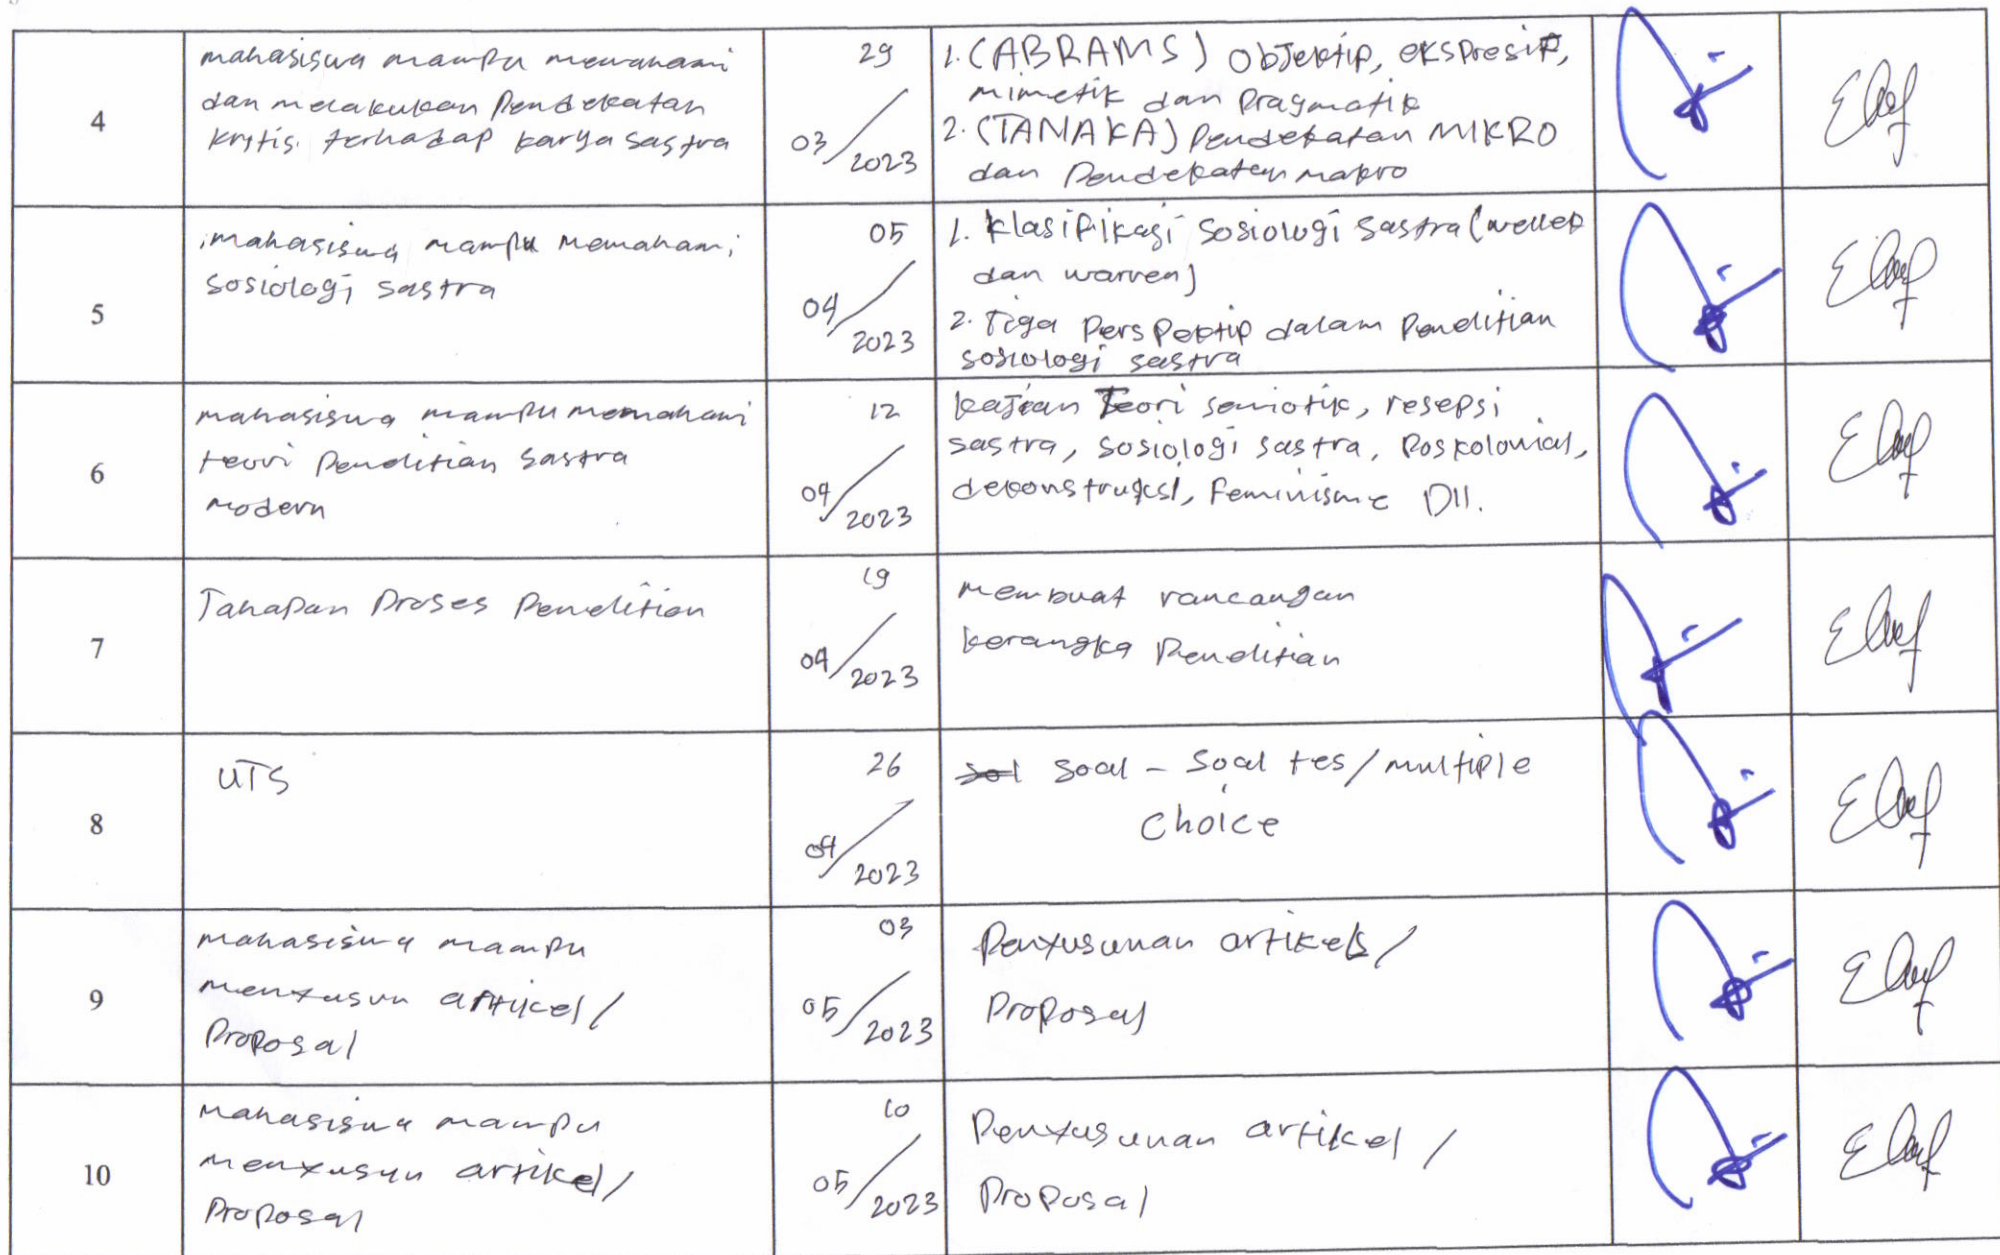 4
mahasiswa mampu memahami
dan melakukan pendekatan
kritis terhadap karya sastra
29
03/2023
1. (ABRAMS) objektip, ekspresif,
mimetik dan pragmatik
2. (TANAKA) pendekatan MIKRO
dan pendekatan makro
5
mahasiswa mampu memahami
sosiologi sastra
05
04/2023
1. klasifikasi sosiologi sastra (wellek
dan warren)
2. Tiga perspektip dalam penelitian
sosiologi sastra
6
mahasiswa mampu memahami
teori penelitian sastra
modern
12
04/2023
kajian Teori semiotik, resepsi
sastra, sosiologi sastra, poskolonial,
dekonstruksi, feminisme Dll.
7
Tahapan proses penelitian
19
04/2023
membuat rancangan
kerangka penelitian
8
UTS
26
04/2023
soal - soal tes/multiple
choice
9
mahasiswa mampu
menyusun artikel/
proposal
03
05/2023
Penyusunan artikels/
proposal
10
mahasiswa mampu
menyusun artikel/
proposal
10
05/2023
Penyusunan artikel/
proposal